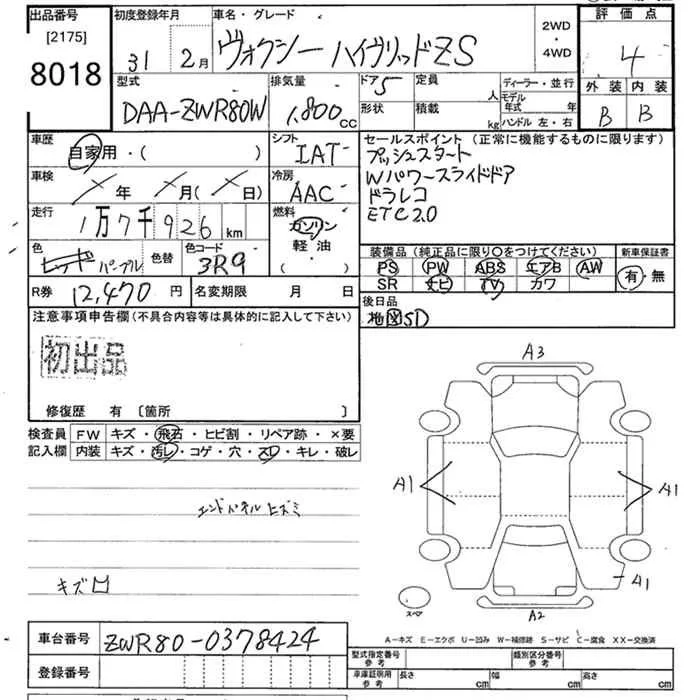 出品番号
[2175]
8018
初度登録年月
31 2月
車名・グレード
ヴォクシー ハイブリッドZS
2WD
・
4WD
評価点
4
外装 内装
B B
型式
DAA-ZWR80W
排気量
1,800cc
ドア 5
定員
人
形状
積載
kg
ディーラー・並行
モデル
年式 年
ハンドル 左・右
車歴
自家用・( )
シフト
IAT
車検
年 月( 日)
冷房
AAC
走行
1万7千926km
燃料
ガソリン
軽・油
( )
色
レッド パープル
色替
色コード
3R9
R券 12,470円
名変期限 月 日
セールスポイント(正常に機能するものに限ります)
プッシュスタート
Wパワースライドドア
ドラレコ
ETC2.0
装備品(純正品に限り○をつけてください)
新車保証書
PS PW ABS エアB AW
SR ナビ TV カワ
有・無
後日品
地図SD
注意事項申告欄(不具合内容等は具体的に記入して下さい)
初出品
修復歴 有 〔箇所 〕
検査員
記入欄
FW キズ・飛石・ヒビ割・リペア跡・×要
内装 キズ・汚レ・コゲ・穴・スレ・キレ・破レ
エンドパネルヒズミ
キズ
A3
A1
A1
A1
A2
スペア
A-キズ E-エクボ U-凹み W-補修跡 S-サビ C-腐食 XX-交換済
車台番号 ZWR80-0378424
登録番号
型式指定番号
参考
類別区分番号
参考
車庫証明用
参考
長さ cm
幅 cm
高さ cm